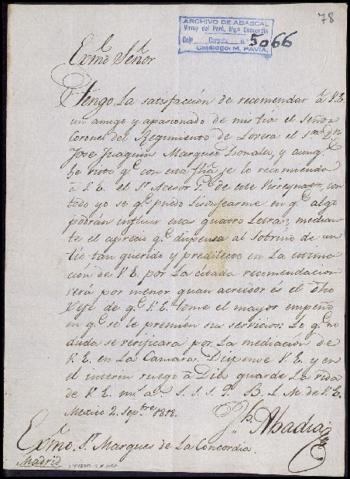 78
ARCHIVO DE ABASCAL
Virrey del Perú, Mqs Concordia
5066
Catálogo: M. PAVÍA.
Exmo Señor
Tengo la satisfaccion de recomendar á V.E.
un amigo y apasionado de mis tia el Señor
Coronel del Regimiento de Lorera el Sor Dn
Jose Joaquin Marquez Donales, y aunq.e
he visto q.e con esta fha. je lo recomienda
á V.E. el Sr. Asesor Gl. de este Virreynato, con
todo yo se q.e puedo lisongearme en q.e algo
podrán influir esas quatro Letras, median
te el aprecio q.e dispensa al Sobrino de un
tio tan querido y predilecto en la estima
cion de V.E. por la citada recomendacion
verá por menor quan acreedor es el dho
Xefe de q.e V.E. tome el mayor empeño
en q.e se le premien sus servicios. Lo q.e no
duda se verificara por la mediacion de
V.E. en la Camara. Dispense V.E. y en
el interin ruego á Dios guarde la vida
de V.E. m.s a.s S.S.S. Q. B. L. M. de V.E.
Mexico 2 Sep.bre 1818.
Abadia
Exmo. Sr. Marques de la Concordia.
Madrid